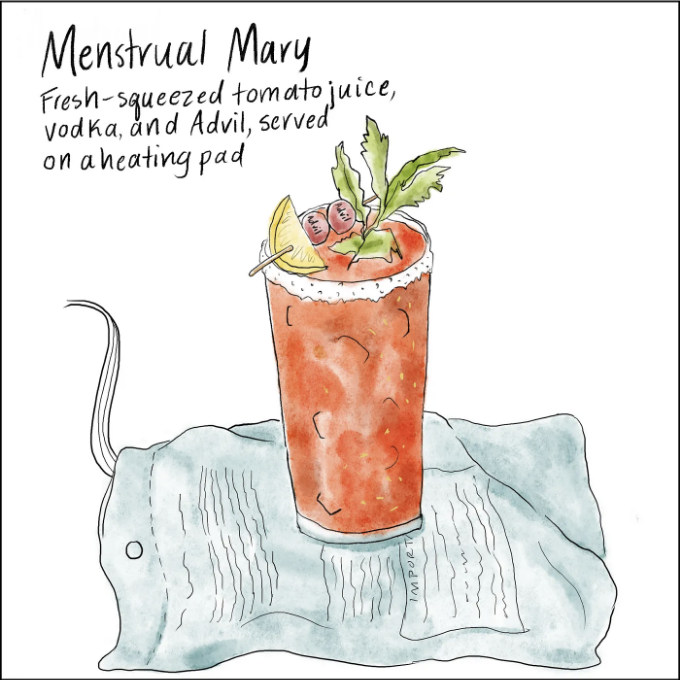 Menstrual Mary
Fresh-squeezed tomato juice,
vodka, and Advil, served
on a heating pad
Advil Advil
IMPORT